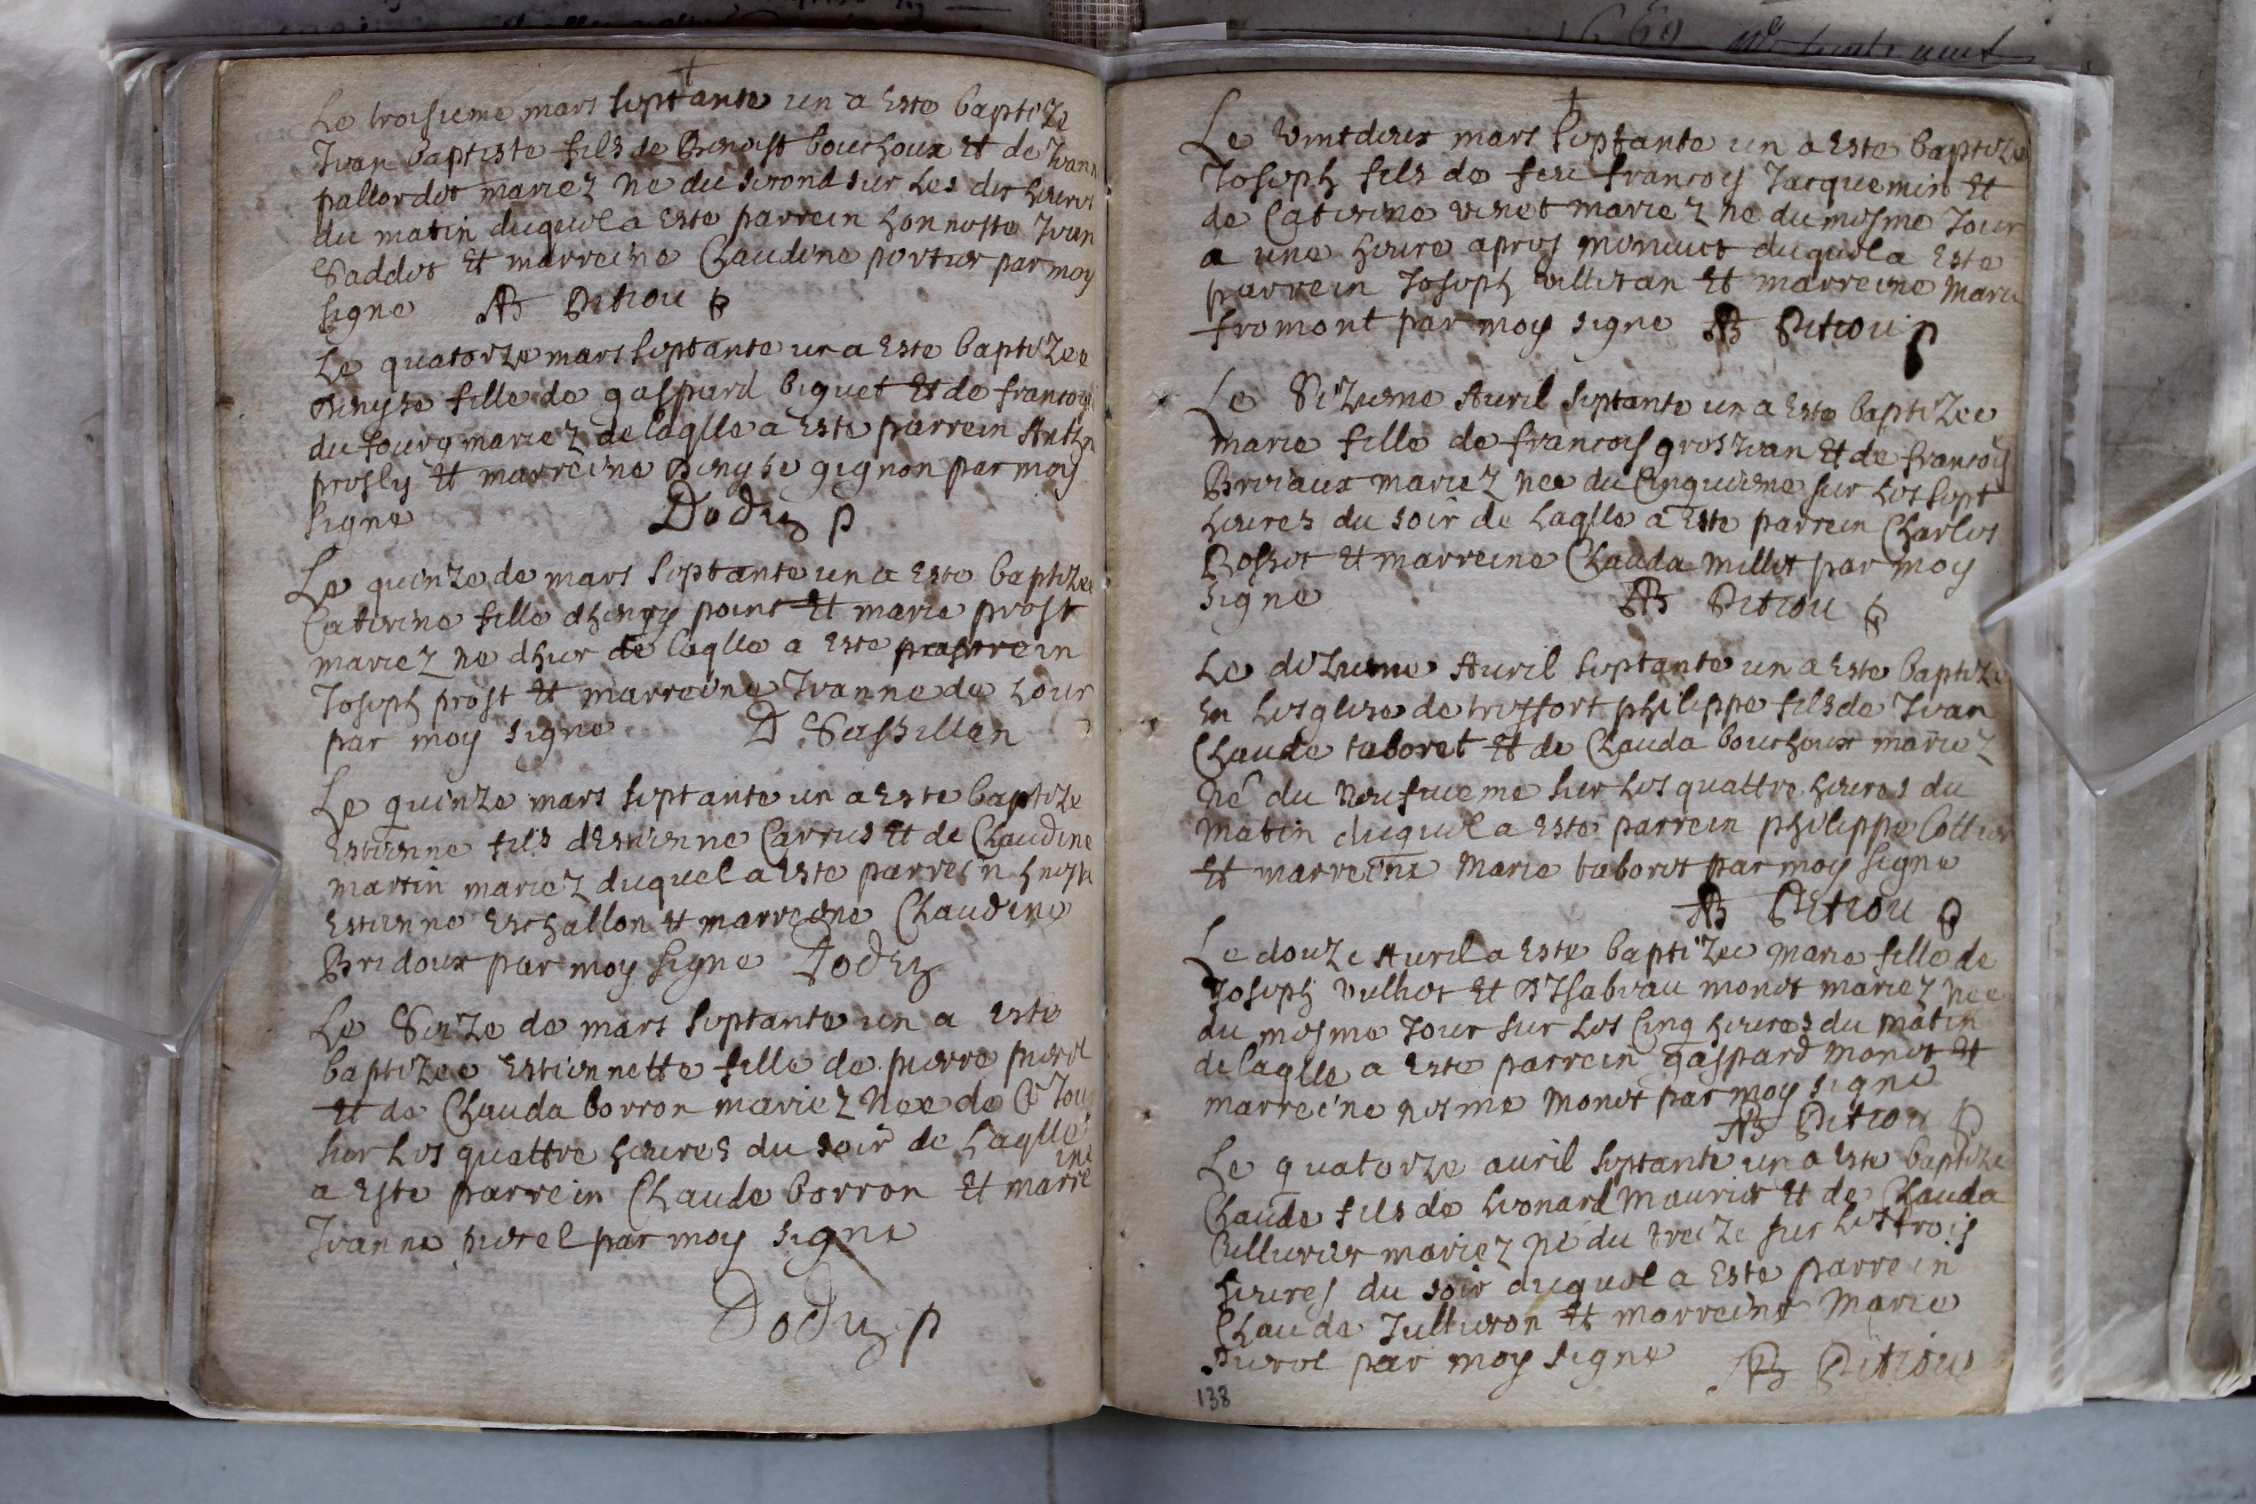 Le troisieme mars septante un a este baptize
Jean baptiste fils de Benoist bouchoux et de Jeann
pallordet mariez ne du second sur les dix heures
du matin duquel a este parrein honneste Jean
Baddet et marreine Claudine portier par moy
signe AB Petiou p
Le quatorze mars septante un a este baptizee
Denyse fille de gaspard biguet et de francoys
du fourg mariez de laqlle a este parrein Anth
prosly et marreine Denyse gignon par moy
signe Dodez p
Le quinze de mars septante un a este baptizee
Caterine fille dhenry point et marie prost
mariez ne dhier de laqlle a este parrein
Joseph prost et marreine Jeanne de Lour
par moy signe D. Sassillan
Le quinze mars septante un a este baptize
Estienne fils destienne Carrus et de Claudine
martin mariez duquel a este parrein hneste
Estienne Eschallon et marreine Claudine
Bridoux par moy signe Dodez
Le Seize de mars septante un a este
baptizee Estiennette fille de pierre purel
et de Clauda borron mariez nee de Ce Jour
sur les quattre heures du soir de laqlle
a este parrein Claude borron et marreine
Jeanne purel par moy signe
Dodez p
Le vintdeux mars septante un a este baptize
Joseph fils de feu francoy Jacquemin et
de Caterine vinet mariez ne du mesme Jour
a une heure apres menuict duquel a este
parrein Joseph villetan et marreine Marie
fromont par moy signe AB Petiou p
Le Sizieme Auril septante un a este baptizee
marie fille de francois grosjean et de francois
Breniaux mariez nee du Cinquieme sur les sept
heures du soir de laqlle a este parrein Charles
Rosset et marreine Clauda millet par moy
signe AB Petiou p
Le dizieme Auril septante un a este baptize
En lesglise de treffort philippe fils de Jean
Claude taboret et de Clauda bouchoux mariez
né du neufvieme sur les quattre heures du
matin duquel a este parrein philippe Cottier
et marreine Marie taboret par moy signe
AB Petiou p
Le douze Auril a este baptizee marie fille de
Joseph vulliot et DIsabeau monet mariez nee
du mesme Jour sur les Cinq heures du matin
de laqlle a este parrein gaspard monet et
marreine nesme monet par moy signe
AB Petiou p
Le quatorze auril septante un a este baptize
Claude fils de leonard mauriet et de Clauda
Cullierier mariez né du treize sur les trois
heures du soir duquel a este parrein
Claude Jullieron et marreine Marie
purel par moy signe AB Petiou
138